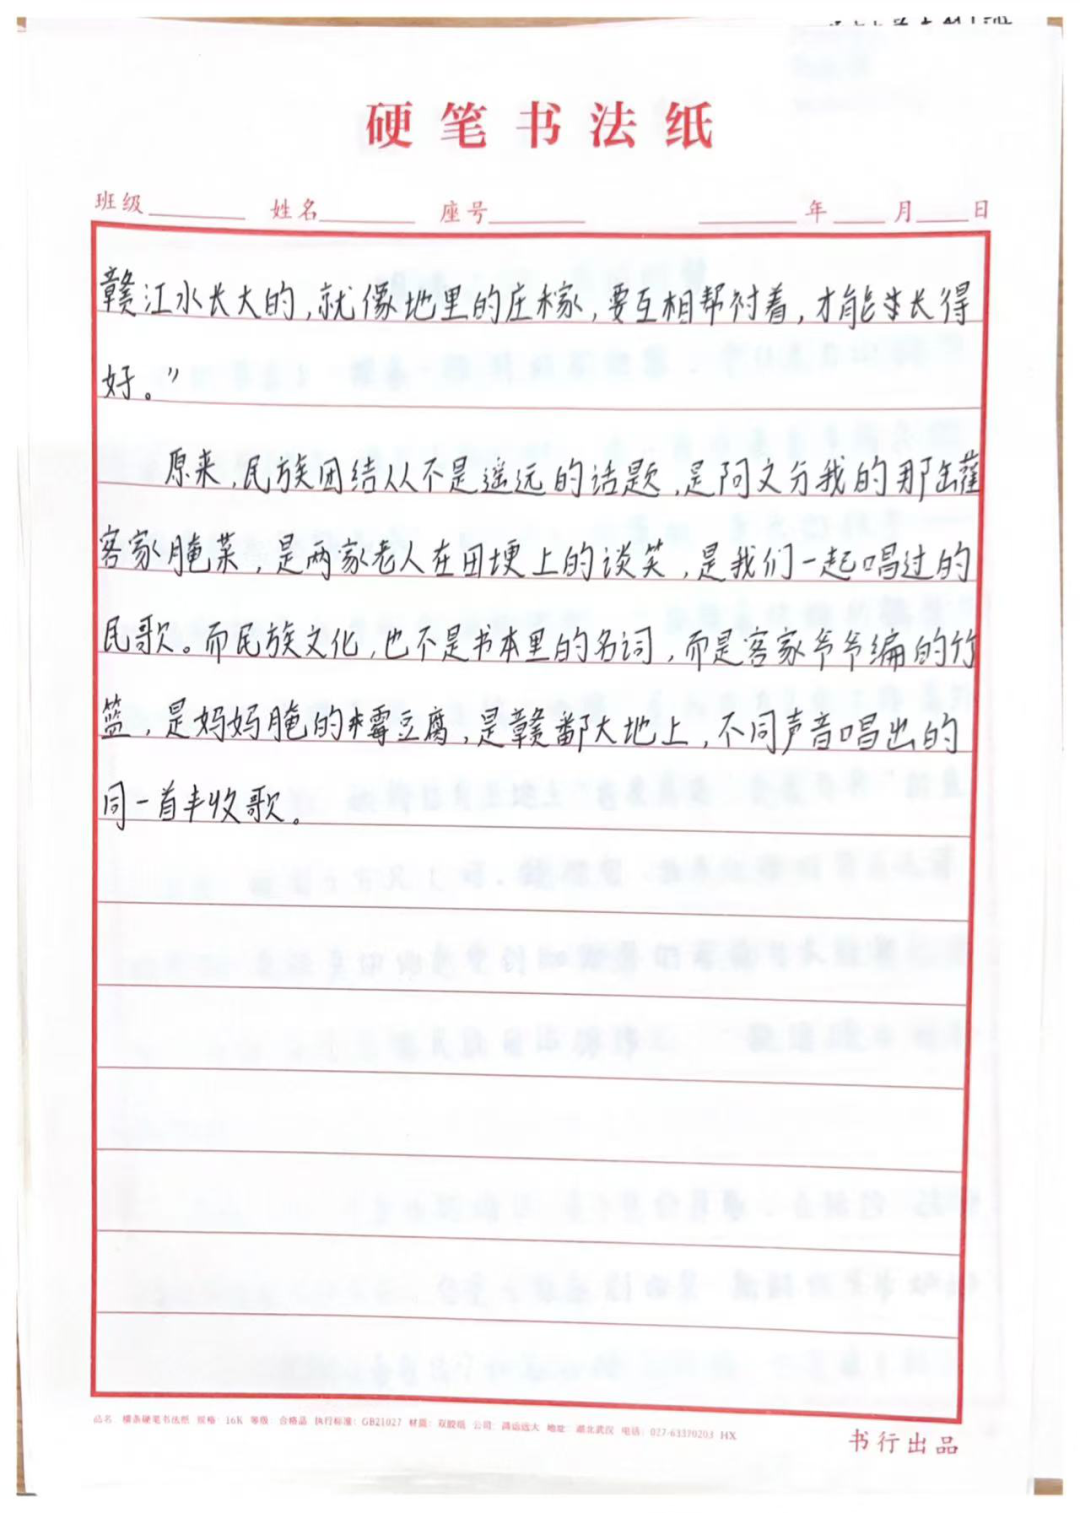 硬笔书法纸
班级 姓名 座号 年 月 日
赣江水长大的,就像地里的庄稼,要互相帮衬着,才能生长得
好。”
原来,民族团结从不是遥远的话题,是阿文分我的那缶
客家腌菜,是两家老人在田埂上的谈笑,是我们一起唱过的
民歌。而民族文化,也不是书本里的名词,而是客家爷爷编的竹
篮,是妈妈腌的霉豆腐,是赣鄱大地上,不同声音唱出的
同一首丰收歌。
品名 横条硬笔书法纸 规格 16K 等级 合格品 执行标准: GB21027 材质: 双胶纸 公司 地址: 湖北武汉 电话: 027-63370203 HX
书行出品